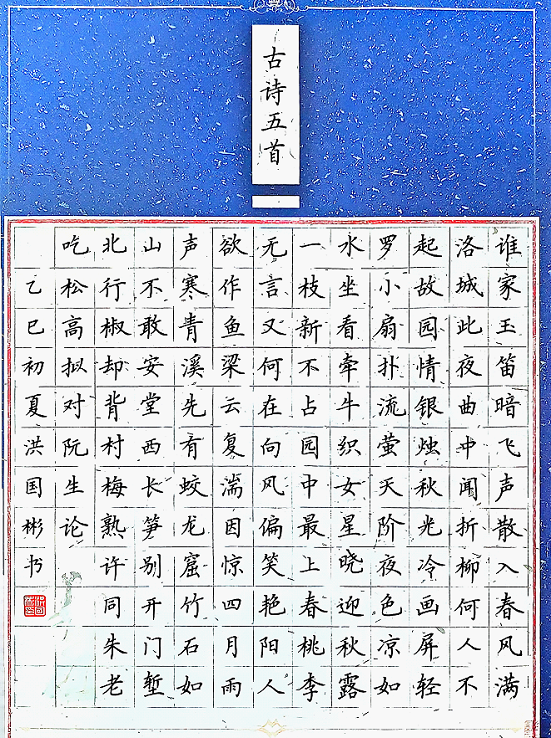 古诗五首
谁家玉笛暗飞声散入春风满
洛城此夜曲中闻折柳何人不
起故园情银烛秋光冷画屏轻
罗小扇扑流萤天阶夜色凉如
水坐看牵牛织女星晓迎秋露
一枝新不占园中最上春桃李
无言又何在向风偏笑艳阳人
欲作鱼梁云复湍因惊四月雨
声寒青溪先有蛟龙窟竹石如
山不敢安堂西长笋别开门堑
北行椒却背村梅熟许同朱老
吃松高拟对阮生论
乙巳初夏洪国彬书